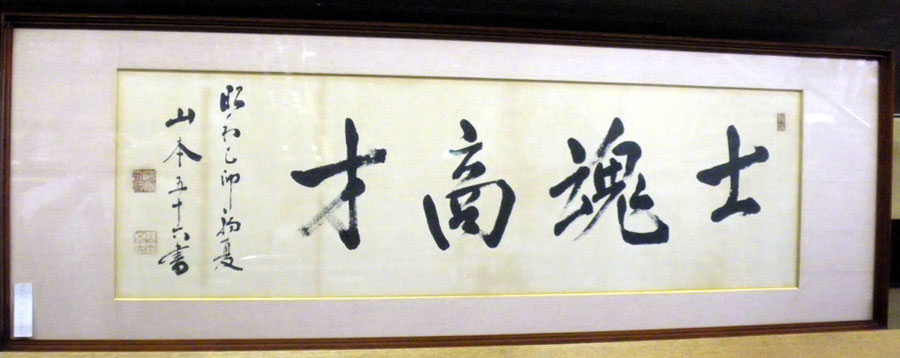 士魂商才
昭和己卯初夏
山本五十六書